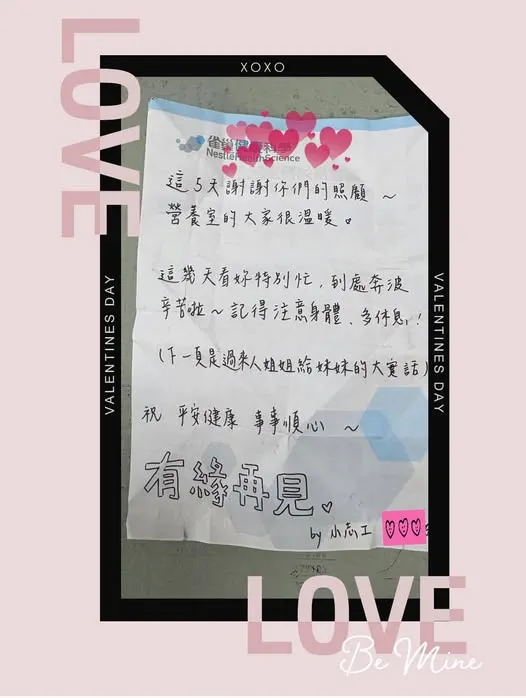 LOVE
XOXO
VALENTINES DAY
VALENTINES DAY
雀巢健康科學
NestléHealthScience
這5天謝謝你們的照顧~
營養室的大家很溫暖。
這幾天看妳特別忙,到處奔波
辛苦啦~記得注意身體、多休息!
(下一頁是過來人姐姐給妹妹的大實話)
祝 平安健康 事事順心 ~
有緣再見。♡
by 小志工
LOVE
Be Mine